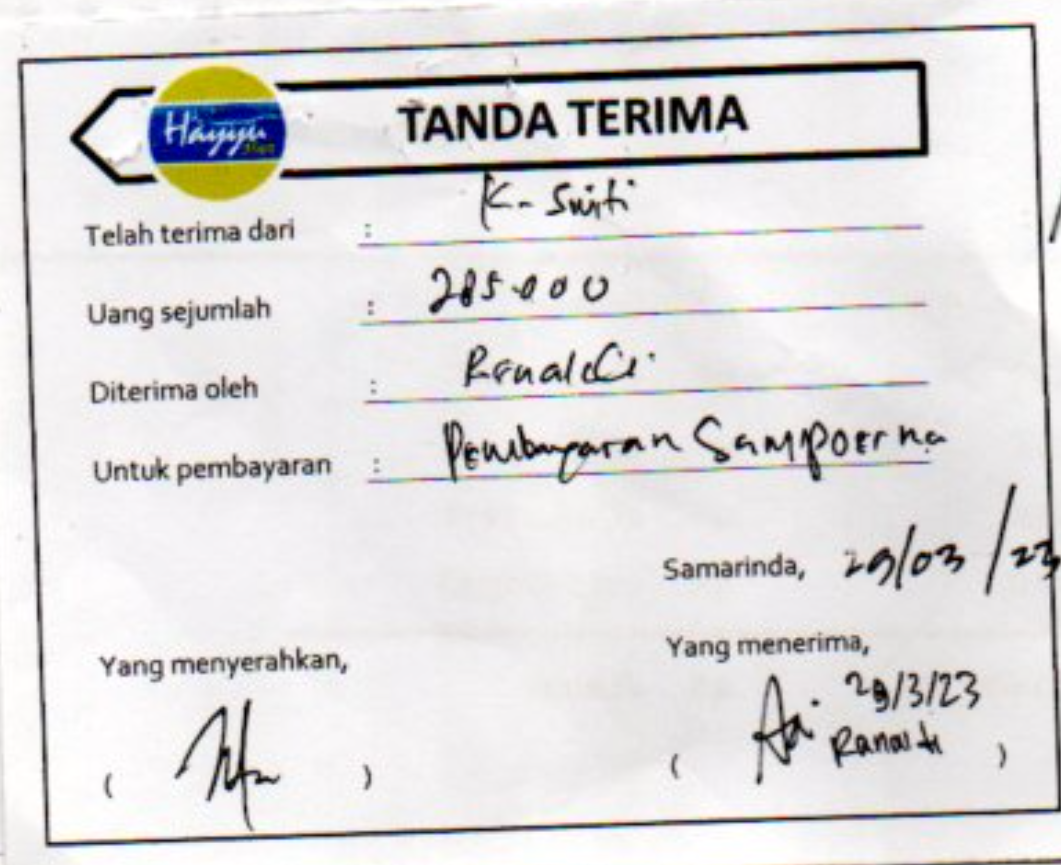 Hayyu
TANDA TERIMA
Telah terima dari : K- Switi
Uang sejumlah : 285.000
Diterima oleh : Renaldi
Untuk pembayaran : Pembayaran Sampoerna
Samarinda, 29/03/23
Yang menyerahkan, Yang menerima,
29/3/23
( ) ( )